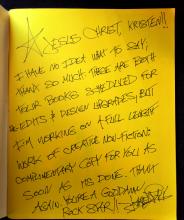 JESUS CHRIST, KRISTEN!!!
I HAVE NO IDEA WHAT TO SAY,
THANK SO MUCH. THESE ARE BOTH
YOUR BOOKS SCHEDULED FOR
RE-EDITS & DESIGN UPGRADES, BUT
I'M WORKING ON A FULL LENGTH
WORK OF CREATIVE NON-FICTION:
COMPLIMENTARY COPY FOR YOU AS
SOON AS MS DONE. THANK
AGAIN YOU'RE A GODDAMN
ROCK STAR!!